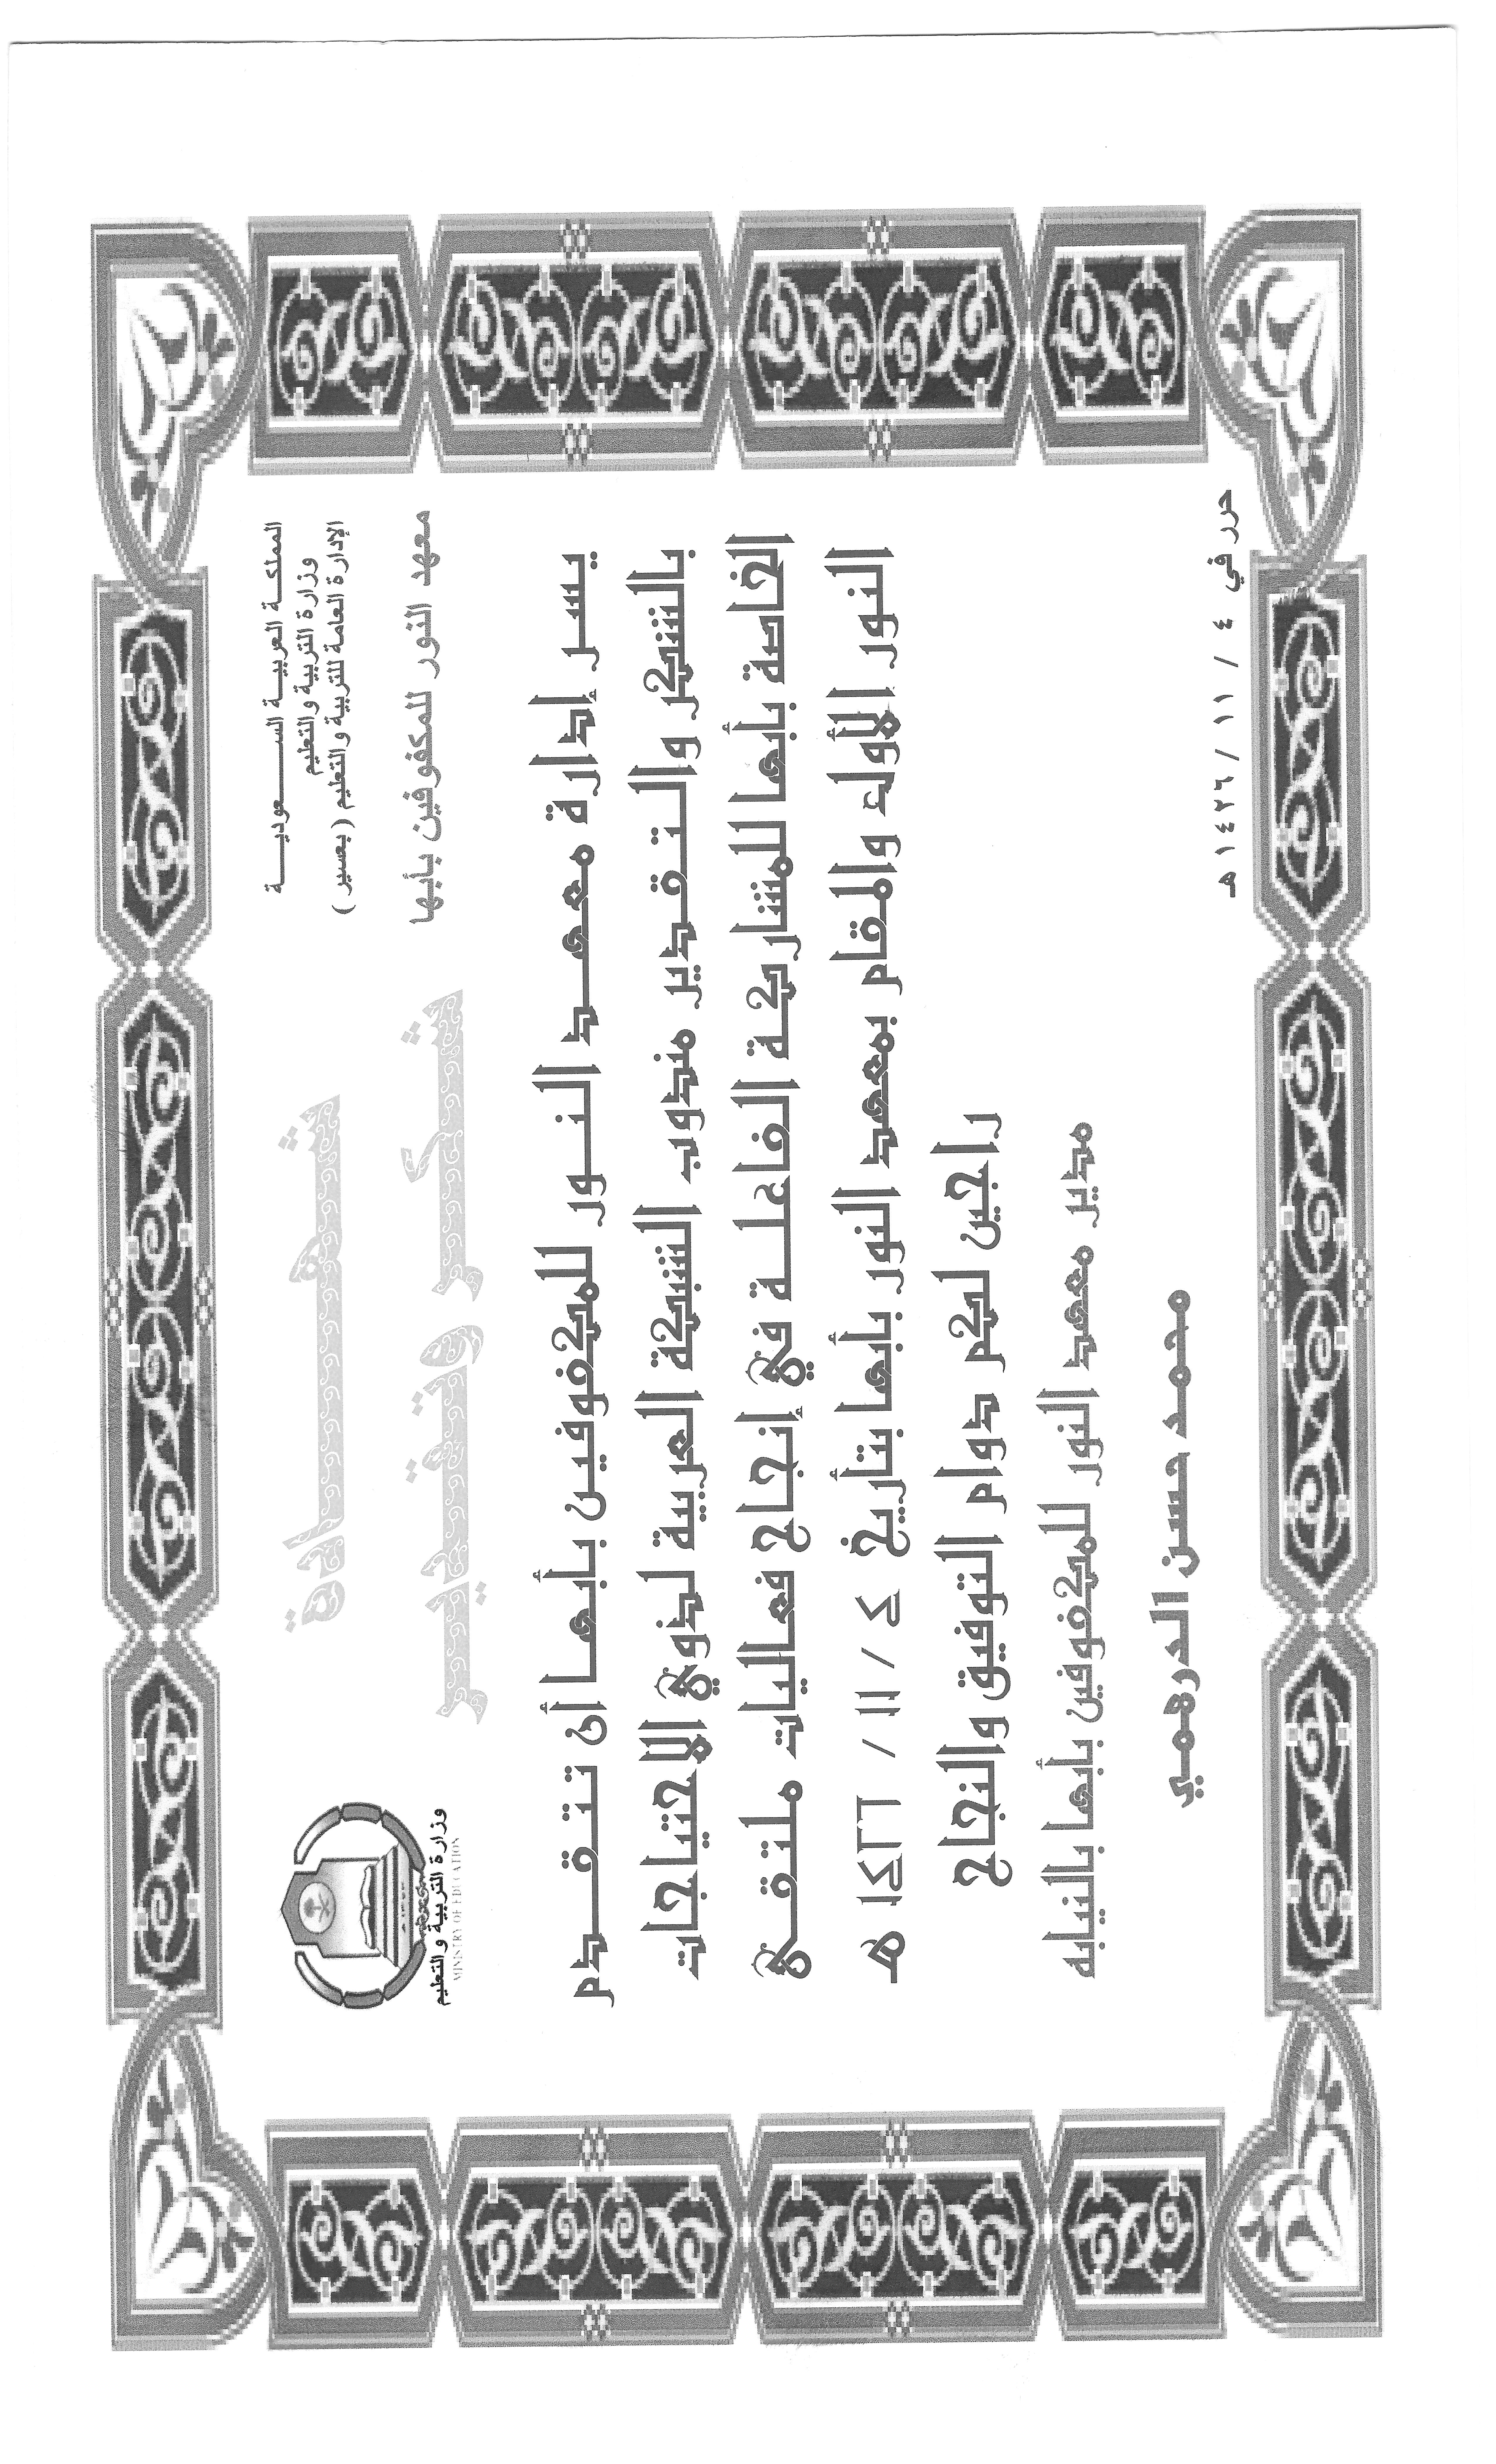 المملكة العربية السعودية
وزارة التربية والتعليم
الإدارة العامة للتربية والتعليم ( بعسير )
معهد النور للمكفوفين بأبها
شهادة
شكر وتقدير
وزارة التربية والتعليم
MINISTRY OF EDUCATION
يسر إدارة معهد النور للمكفوفين بأبها أن تتقدم
بالشكر والتقدير الشبكة العربية لذوي الاحتياجات
الخاصة بأبها للمشاركة الفاعلة في إنجاح فعاليات ملتقى
النور الأول والمقام بمعهد النور بأبها بتاريخ ٤ / ١١ / ١٤٢٦ هـ
راجين لكم دوام التوفيق والنجاح
مدير معهد النور للمكفوفين بأبها بالنيابة
محمد حسن الدرهمي
حرر في ٤ / ١١ / ١٤٢٦ هـ